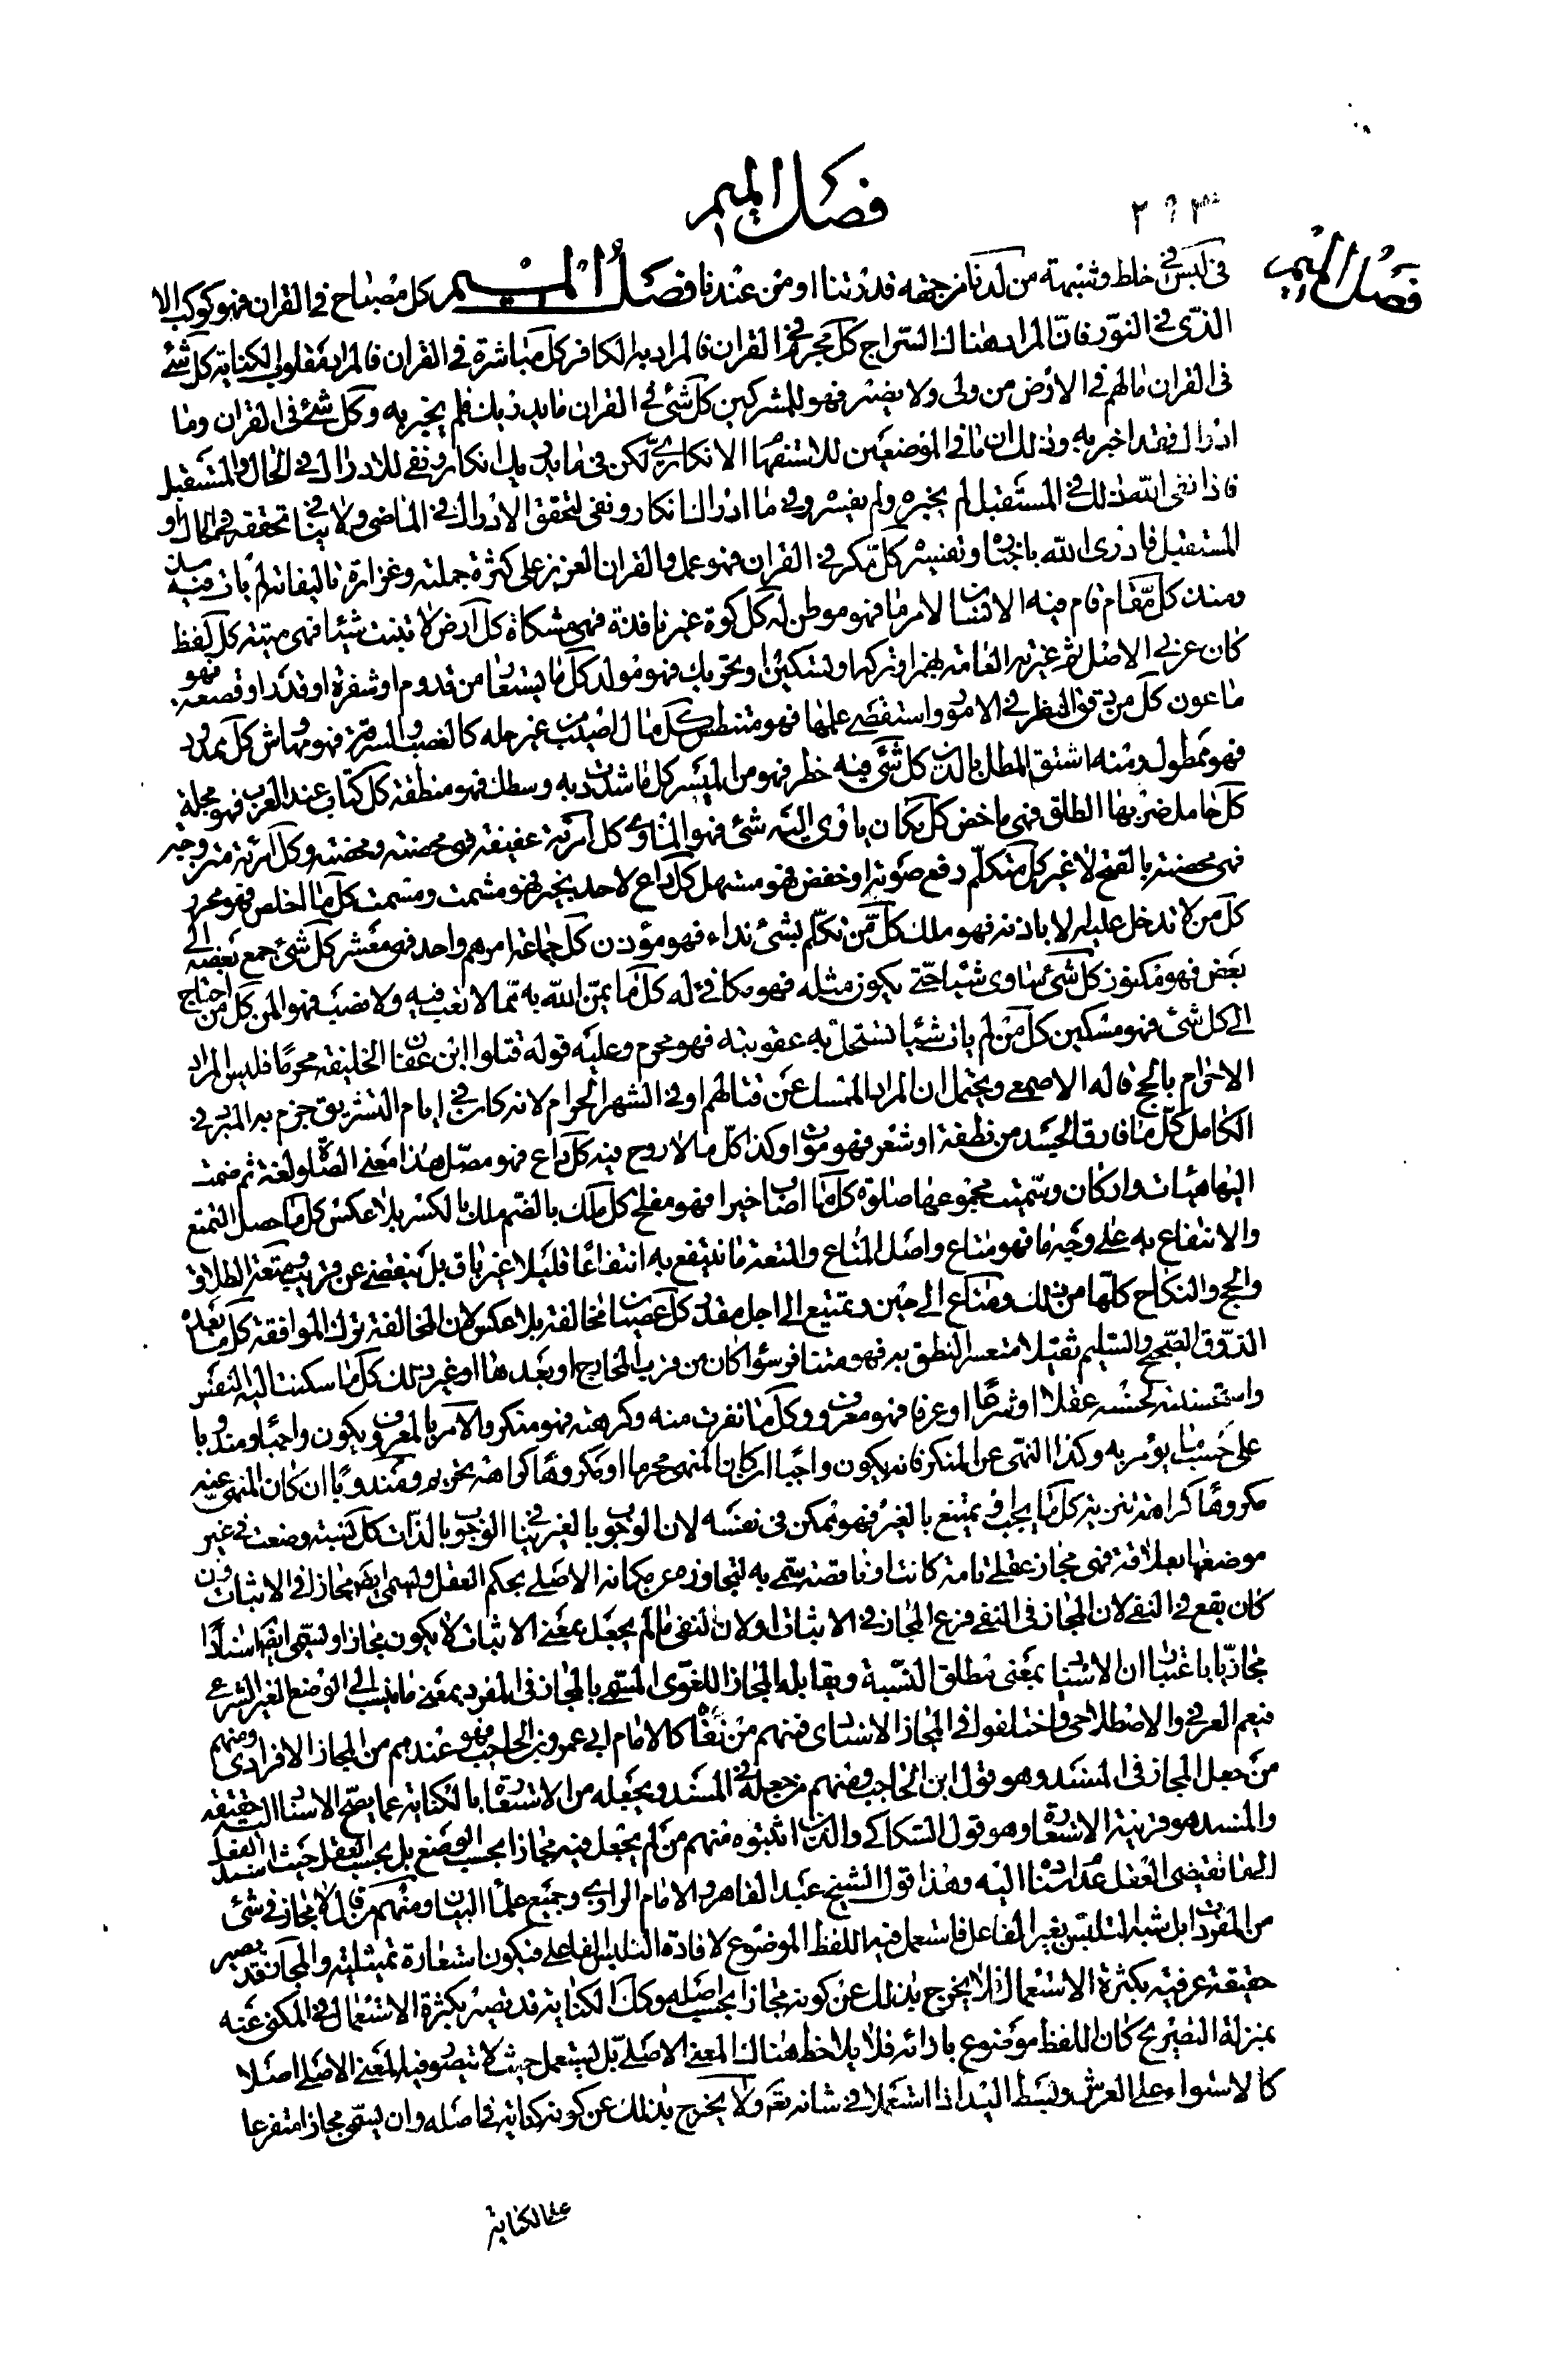 فصل الميم
٣٢٣
فصل الميم
فى لبس فى خلط وشبهة من لدنا من جهة قدرتنا او من عندنا فصل الميم كل مصباح فى القران فهو كوكب الا
الذى فى النور فان المراد هناك السراج كل مجرم فى القران فالمراد به الكافر كل مباشرة فى القران فالمراد الكناية كل شئ
فى القران مالهم فى الارض من ولى ولا نصير فهو للمشركين كل شئ فى القران ما يدريك فلم يخبر به وكل شئ فى القران وما
ادراك فقد اخبر به وذلك ان ما فى الموضعين للاستفهام الانكارى لكن فى ما يدريك انكار ونفى للادراك فى الحال والمستقبل
فاذا نفى الله ذلك فى المستقبل لم يخبره ولم يفسره وفى ما ادراك انكار ونفى لتحقق الادراك فى الماضى ولا ينافى تحققه فى الحال او
المستقبل فادرى الله باخباره وتفسيره كل مكر فى القران فهو عمل والقران العزيز على كثرة جملته وغزارة تاليفاته لم يات فيه
كل مقام قام فيه الانسان لامر ما فهو موطن له كل كوة غير نافذة فهى مشكاة كل ارض لا تنبت شيئا فهى ميتة كل لفظ
كان عربى الاصل ثم غيرته العامة بهمز او تركه او تسكين او تحريك فهو مولد كل ما يستعار من قدوم او شفرة او قدر او قصعة فهو
ماعون كل من دقق النظر فى الامور واستقصى علمها فهو متنطس كل مال اصيب من غير حله كالغصب والسرقة فهو مهاش كل ممدود
فهو ممطول ومنه اشتق المطل بالدين كل شئ فيه خطر فهو من الميسر كل ما شددت به وسطك فهو منطقة كل كتاب عند العرب فهو مجلة
كل حامل ضربها الطلق فهى ماخض كل مكان ياوى اليه شئ فهو الماوى كل امرئة عفيفة فهى محصنة ومحصنة وكل امرئة متزوجة
فهى محصنة بالفتح لا غير كل متكلم رفع صوته او خفض فهو مستهل كل داع لاحد بخير فهو مشمت ومسمت كل ما اخلص فهو محرر
كل من لا تدخل عليه الا باذنه فهو ملك كل من تكلم بشئ نداء فهو مؤذن كل جماعة امرهم واحد فهى معشر كل شئ جمع بعضه الى
بعض فهو مكنوز كل شئ ساوى شيئا حتى يكون مثله فهو مكافئ له كل ما يمن الله به مما لا تعب فيه ولا نصب فهو المن كل من احتاج
الى كل شئ فهو مسكين كل من لم يات شيئا تستحل به عقوبته فهو محرم وعليه قوله قتلوا ابن عفان الخليفة محرما فليس المراد
الاحرام بالحج قاله الاصمعى ويحتمل ان المراد الممسك عن قتالهم او فى الشهر الحرام لانه كان فى ايام التشريق جزم به المبرد فى
الكامل كل ما فارق الجسد من نطفة او شعر فهو موات وكذا كل ما لا روح فيه كل داع فهو مصل هذا معنى الصلوة لغة ثم ضمت
اليها هيئات واركان وسميت مجموعها صلوة كل من اصاب خيرا فهو مفلح كل ملك بالضم ملك بالكسر بلا عكس كل ما حصل التمتع
والانتفاع به على وجه ما فهو متاع واصل المتاع والمتعة ما ينتفع به انتفاعا قليلا غير باق بل ينقضى عن قريب ومتعة الطلاق
والحج والنكاح كلها من ذلك ومتاع الى حين وتمتيع الى اجل مقدر كل عصيان مخالفة بلا عكس لان المخالفة ترك الموافقة كل ما يعده
الذوق الصحيح والسليم ثقيلا متعسر النطق به فهو متنافر سواء كان من قرب المخارج او بعدها او غير ذلك كل ما سكنت اليه النفس
واستحسنته لحسنه عقلا او شرعا او عرفا فهو معروف وكل ما نفرت منه وكرهته فهو منكر والامر بالمعروف يكون واجبا ومندوبا
على حسب ما يؤمر به وكذا النهى عن المنكر فانه يكون واجبا ان كان المنهى محرما او مكروها كراهة تحريم ومندوبا ان كان المنهى عنه
مكروها كراهة تنزيه كل ما يجب او يمتنع بالغير فهو ممكن فى نفسه لان الوجوب بالغير ينافى الوجوب بالذات كل نسبة وضعت فى غير
موضعها بعلاقة فهى مجاز عقلى تامة كانت او ناقصة سمى به لتجاوزه عن مكانه الاصلى بحكم العقل ويسمى ايضا مجازا فى الاثبات وان
كان يقع فى النفى لان المجاز فى النفى فرع المجاز فى الاثبات او لان النفى ما لم يجعل بمعنى الاثبات لا يكون مجازا ويسمى ايضا اسنادا
مجازيا باعتبار ان الاسناد بمعنى مطلق النسبة ويقابله المجاز اللغوى المسمى بالمجاز فى المفرد بمعنى ما ينسب الى الوضع الغير الشرعى
فيعم العرفى والاصطلاحى واختلفوا فى المجاز الاسنادى فمنهم من نفاه كالامام ابى عمرو بن الحاجب فهو عندهم من المجاز الافرادى ومنهم
من جعل المجاز فى المسند وهو قول ابن الحاجب ومنهم من جعله فى المسند ويجعله من الاستعارة بالكناية عما يصح الاسناد اليه حقيقة
والمسند هو قرينة الاستعارة وهو قول السكاكى والذين اثبتوه منهم من لم يجعل فيه مجازا بحسب الوضع بل بحسب العقل حيث اسند الفعل
الى ما يقتضى العقل عدم اسناده اليه وهذا قول الشيخ عبد القاهر والامام الرازى وجميع علماء البيان ومنهم من قال لا مجاز فى شئ
من المفردات بل شبه التلبس بغير الفاعل فاستعمل فيه اللفظ الموضوع لافادة التلبس الفاعلى فيكون استعارة تمثيلية والمجاز قد يصير
حقيقة عرفية بكثرة الاستعمال فلا يخرج بذلك عن كونه مجازا بحسب اصله وكذا الكناية قد تصير بكثرة الاستعمال فى المكنى عنه
بمنزلة التصريح كان اللفظ موضوع بازائه فلا يلاحظ هناك المعنى الاصلى بل يستعمل حيث لا يتصور فيه المعنى الاصلى اصلا
كالاستواء على العرش وبسط اليد اذا استعملا فى شانه تعم ولا يخرج بذلك عن كونه كناية فى اصله وان يسمى مجازا متفرعا
على الكناية